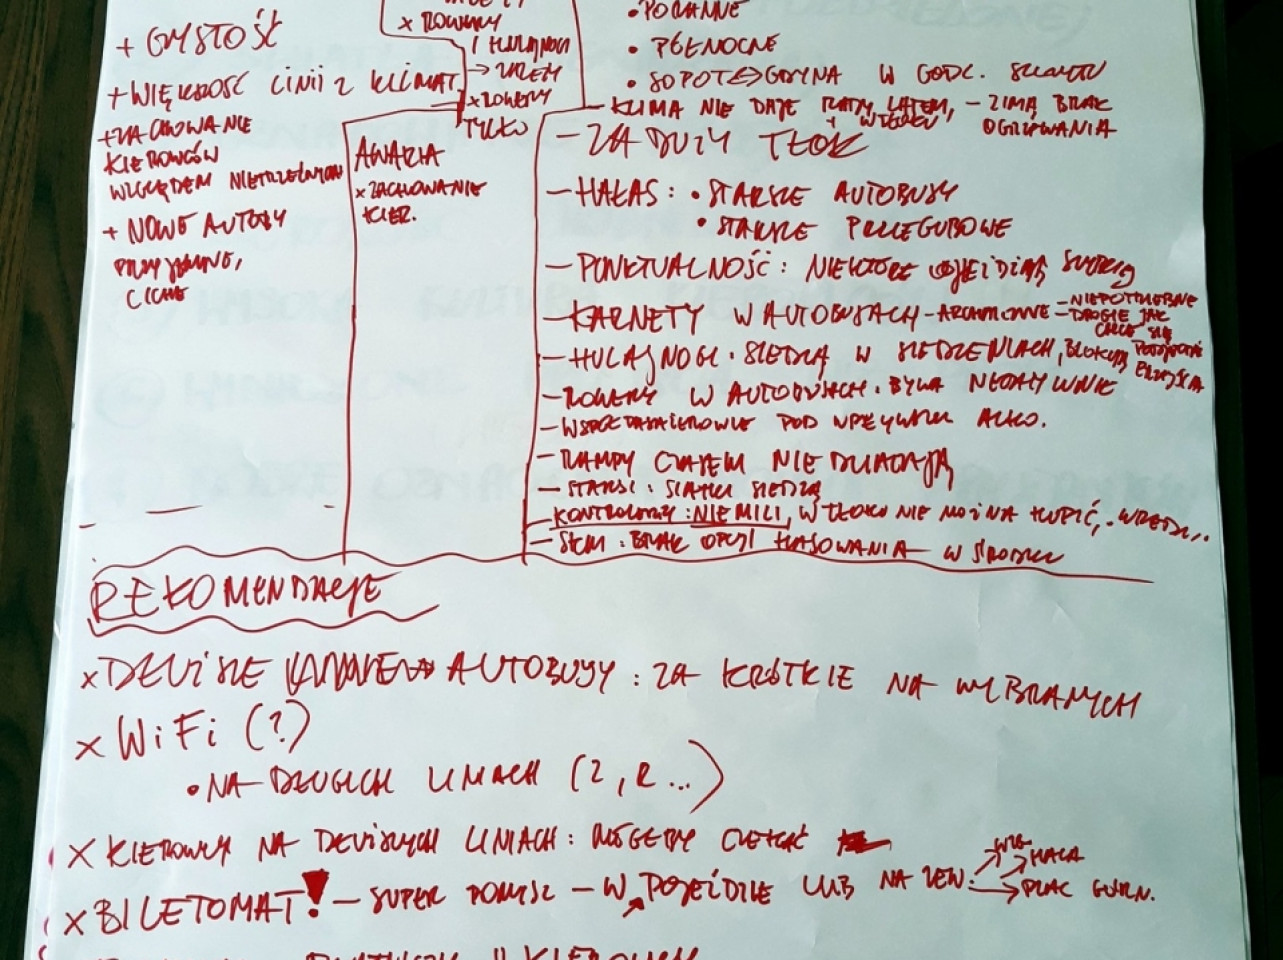 + CZYSTOŚĆ
+ WIĘKSZOŚĆ LINII Z KLIMAT.
+ ZACHOWANIE
KIEROWCÓW
WZGLĘDEM NIETRZEŹWYCH
+ NOWE AUTOBUSY
PRZYJEMNE,
CICHE
x ROWERY
I HULAJNOGI
→ RAZEM
x ROWERY
TYLKO
AWARIA
x ZACHOWANIE
KIER.
• PORANNE
• PÓŁNOCNE
• SOPOT ↔ GDYNIA W GODZ. SZCZYTU
- KLIMA NIE DAJE RADY LATEM, - ZIMĄ BRAK
OGRZEWANIA
- ZA DUŻY TŁOK
- HAŁAS: • STARSZE AUTOBUSY
• STARSZE PRZEGUBOWE
- PUNKTUALNOŚĆ: NIEKTÓRE
- KARNETY W AUTOBUSACH - ARCHAICZNE - NIEPOTRZEBNE
- DROGIE JAK
CHCE SIĘ
- HULAJNOGI. SIEDZĄ W SIEDZENIACH, BLOKUJĄ
- ROWERY W AUTOBUSACH. BYWA NEGATYWNIE
- WSPÓŁPASAŻEROWIE POD WPŁYWEM ALKO.
- RAMPY CZASEM NIE DZIAŁAJĄ
- STARSI: SIATKI SIEDZĄ
- KONTROLERZY: NIEMILI, W TŁOKU NIE MOŻNA KUPIĆ,
- SKM: BRAK OPCJI KASOWANIA W ŚRODKU
REKOMENDACJE
x AUTOBUSY: ZA KRÓTKIE NA WYBRANYCH
x WiFi (?)
• NA DŁUGICH LINIACH (Z, R...)
x KIEROWCY NA LINIACH: MOGLIBY CZEKAĆ
x BILETOMAT! - SUPER POMYSŁ - W POJEŹDZIE LUB NA ZEW. → HALA
→ PLAC GÓRN.